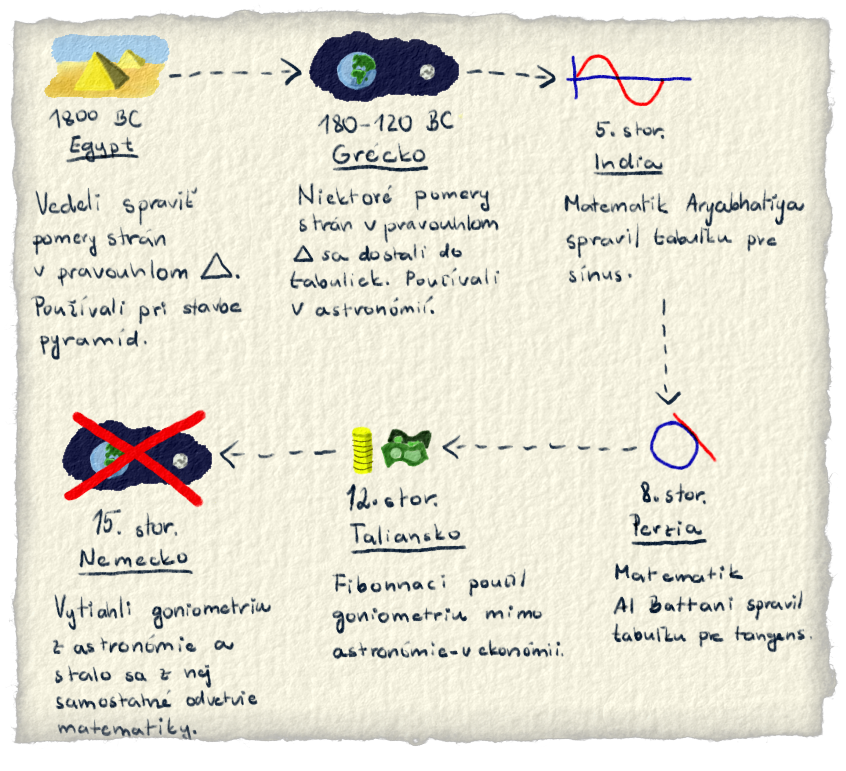 1800 BC
Egypt
Vedeli spraviť
pomery strán
v pravouhlom △.
Používali pri stavbe
pyramíd.
180-120 BC
Grécko
Niektoré pomery
strán v pravouhlom
△ sa dostali do
tabuliek. Používali
v astronómií.
5. stor.
India
Matematik Aryabhatiya
spravil tabuľku pre
sínus.
8. stor.
Perzia
Matematik
Al Battani spravil
tabuľku pre tangens.
12. stor.
Taliansko
Fibonnaci použil
goniometriu mimo
astronómie - v ekonómii.
15. stor.
Nemecko
Vytiahli goniometriu
z astronómie a
stalo sa z nej
samostatné odvetvie
matematiky.